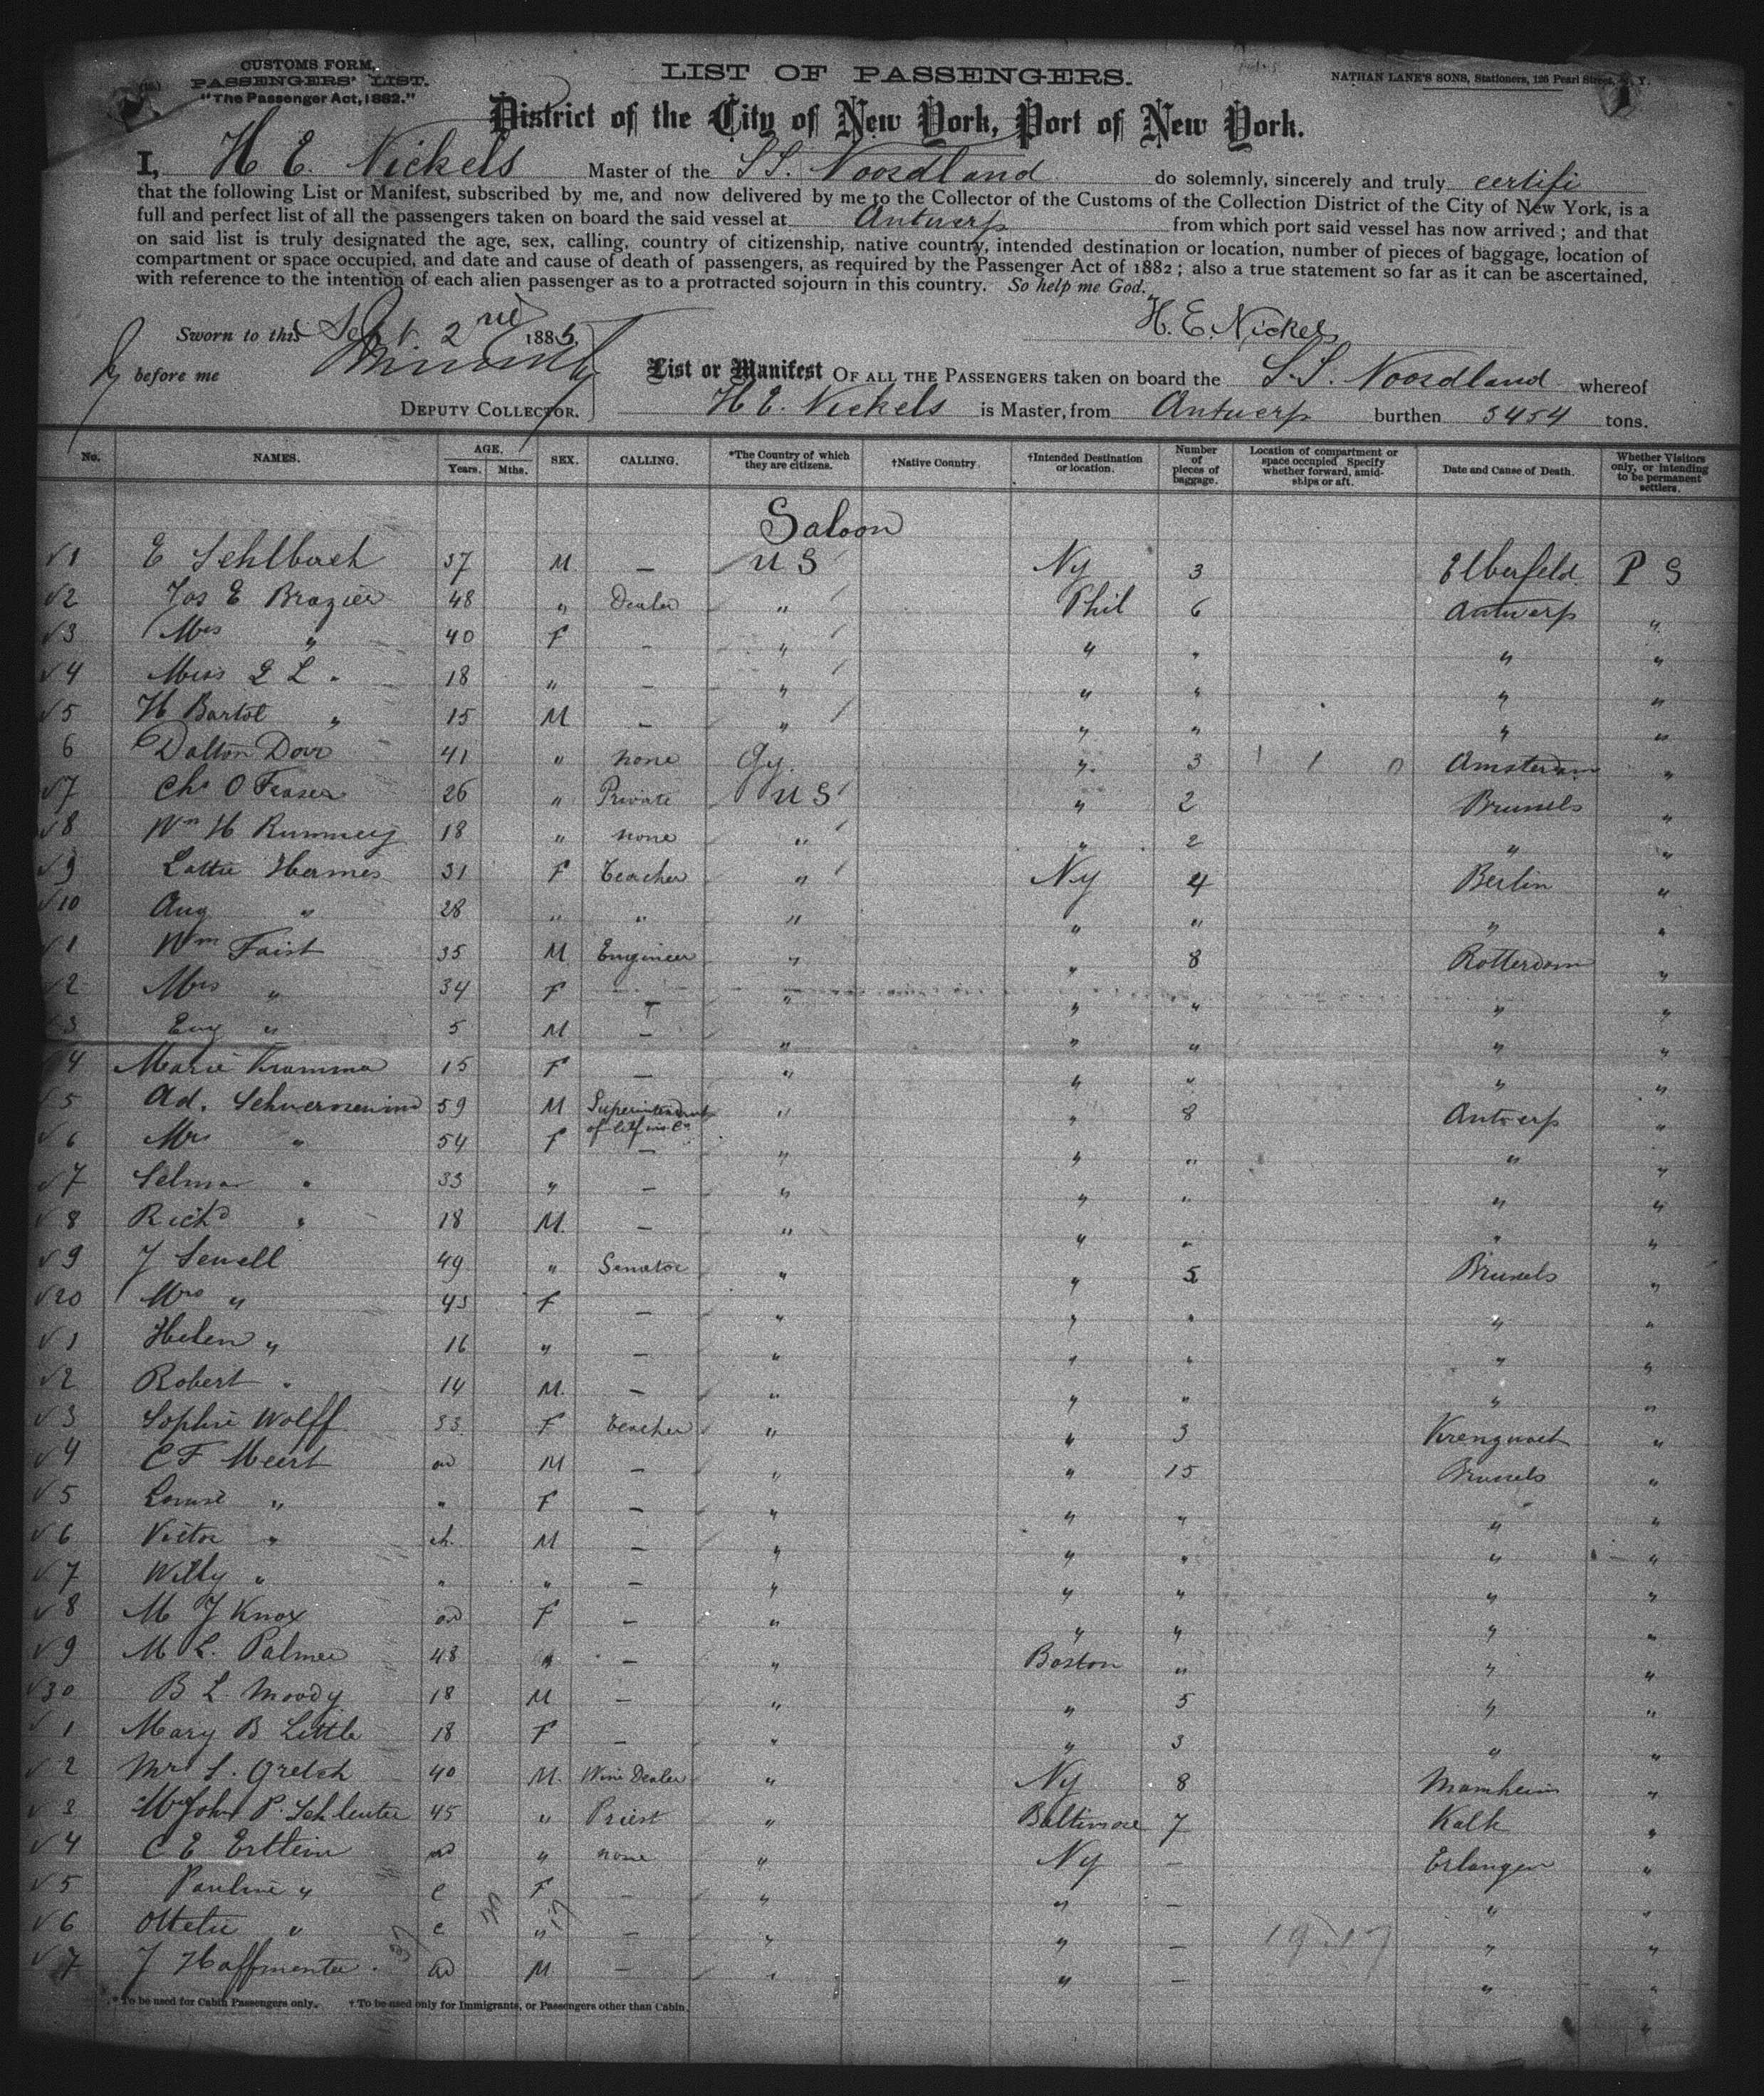 CUSTOMS FORM,
PASSENGERS' LIST.
"The Passenger Act, 1882."
LIST OF PASSENGERS.
NATHAN LANE'S SONS, Stationers, 126 Pearl Street, N. Y.
District of the City of New York, Port of New York.
I, H E. Nickels Master of the S S. Noordland do solemnly, sincerely and truly certifi
that the following List or Manifest, subscribed by me, and now delivered by me to the Collector of the Customs of the Collection District of the City of New York, is a
full and perfect list of all the passengers taken on board the said vessel at Antwerp from which port said vessel has now arrived; and that
on said list is truly designated the age, sex, calling, country of citizenship, native country, intended destination or location, number of pieces of baggage, location of
compartment or space occupied, and date and cause of death of passengers, as required by the Passenger Act of 1882; also a true statement so far as it can be ascertained,
with reference to the intention of each alien passenger as to a protracted sojourn in this country. So help me God.
H. E. Nickels
Sworn to this Sept. 2nd 1885,
before me
DEPUTY COLLECTOR.
List or Manifest OF ALL THE PASSENGERS taken on board the S.S. Noordland whereof
H E. Nickels is Master, from Antwerp burthen 3454 tons.
No. NAMES. AGE. Years. Mths. SEX. CALLING. *The Country of which they are citizens. †Native Country. †Intended Destination or location. Number of pieces of baggage. Location of compartment or space occupied. Specify whether forward, amidships or aft. Date and Cause of Death. Whether Visitors only, or intending to be permanent settlers.
Saloon
1 E Sehlbach 37 M — U S Ny 3 Elberfeld P S
2 Jos E Brazier 48 " Dealer " Phil 6 Antwerp "
3 Mrs " 40 F — " " " " "
4 Miss L " 18 " — " " " " "
5 H Bartol " 15 M — " " " " "
6 Dalton Dorr 41 " none Gy. " 3 Amsterdam "
7 Chs O Fraser 26 " Private U S " 2 Brussels "
8 Wm H Rummey 18 " none " " 2 " "
9 Lottie Hermes 31 F Teacher " Ny 4 Berlin "
10 Aug " 28 " " " " " " "
1 Wm Faist 35 M Engineer " " 8 Rotterdam "
2 Mrs " 34 F — " " " " "
3 Eug " 5 M — " " " " "
4 Marie Kramma 15 F — " " " " "
5 Ad. 59 M Superintendent of " " 8 Antwerp "
6 Mrs " 54 F — " " " " "
7 Selma " 33 " — " " " " "
8 Richd " 18 M. — " " " " "
9 J Sewell 49 " Senator " " 5 Brussels "
20 Mrs " 43 F — " " " " "
1 Helen " 16 " — " " " " "
2 Robert " 14 M. — " " " " "
3 Sophie Wolff 33 F teacher " " 3 "
4 C F Meert ad M — " " 15 Brussels "
5 Louise " " F — " " " " "
6 Victor " ch. M — " " " " "
7 Willy " " " — " " " " "
8 M J Knox ad F — " " " " "
9 M L. Palmer 48 " — " Boston " " "
30 B L Moody 18 M — " " 5 " "
1 Mary B Little 18 F — " " 3 " "
2 Mr L. Gretsch 40 M. Wine Dealer " Ny 8 Manheim "
3 Mr John P. Schleuter 45 " Priest " Baltimore 7 Kalk "
4 C E Erttein ad " none " Ny — Erlangen "
5 Pauline " c F — " " — " "
6 Ottelie " c " — " " — " "
7 J Haffmenter ad M — " " — " "
19.17
* To be used for Cabin Passengers only. † To be used only for Immigrants, or Passengers other than Cabin.